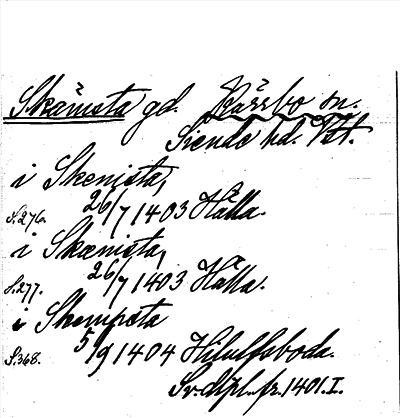 Skämsta gd. Kärrbo sn.
Siende hd. Vstl.
i Skemista,
S.276. 26/7 1403 Hälla.
i Skæmista,
S.277. 26/7 1403 Hälla.
i Skempsta
S.368. 5/9 1404 Hilulfsboda.
Sv. dipl. fr. 1401. I.